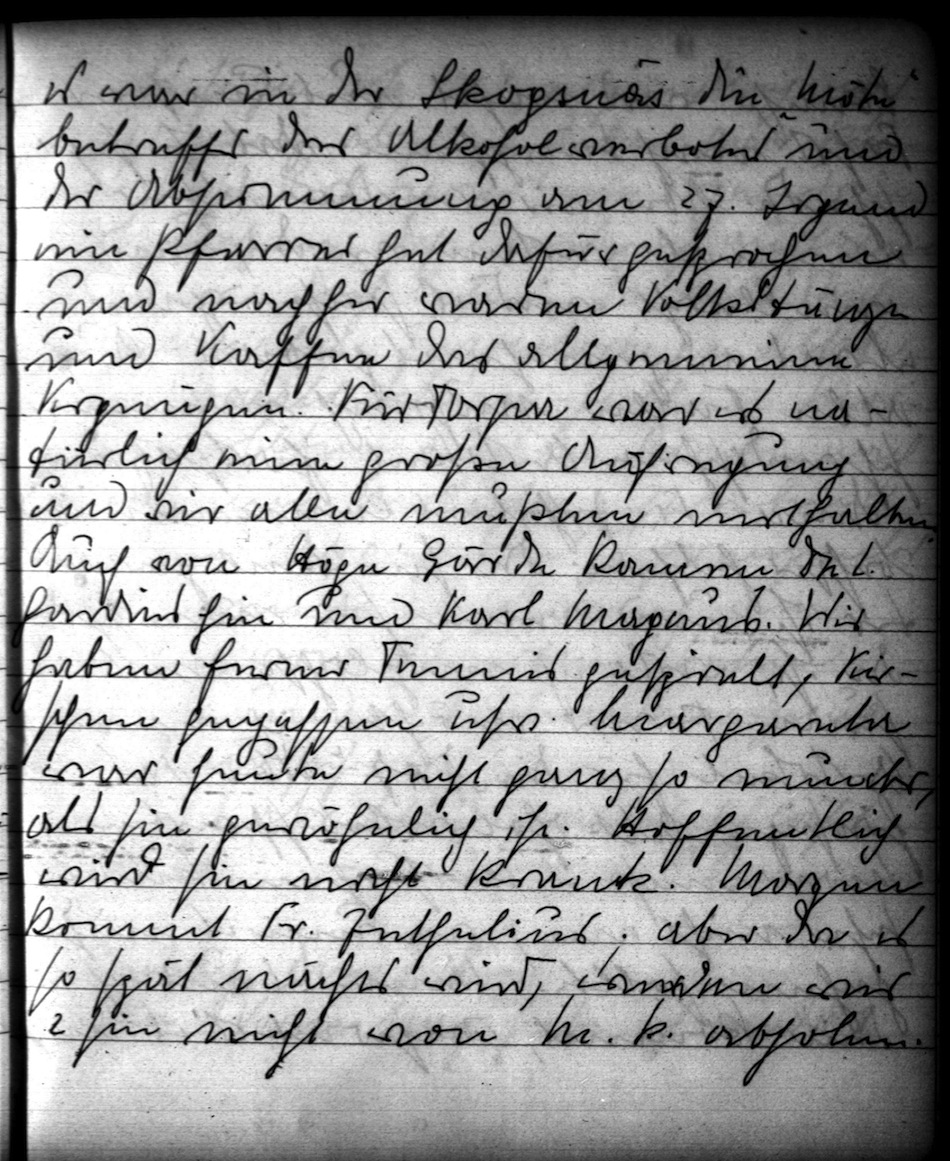 es war in der Skogsnäs die Möte
betreffs des Alkoholverbotes und
der Abstimmung am 27. Irgend
ein Pfarrer hat dafür gesprochen
und nachher waren Volkstänze
und Kaffee das allgemeine
Vergnügen. Für Torpa war es na-
türlich eine große Aufregung
und wir alle mußten
Auch von Höge Gärde kamen de l.
Gardies hin und Karl Magnus. Wir
haben ferner Tennis gespielt, Kir-
schen gegessen usw. Margareta
war heute nicht ganz so munter,
als sie gewöhnlich ist. Hoffentlich
wird sie nicht krank. Morgen
kommt Fr. Zethelius. aber da es
so spät nachts wird, werden wir
sie nicht von M. K. abholen.